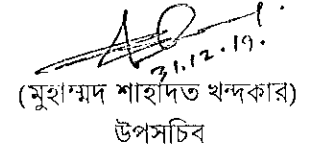 31.12.19.
(মুহাম্মদ শাহাদত খন্দকার)
উপসচিব